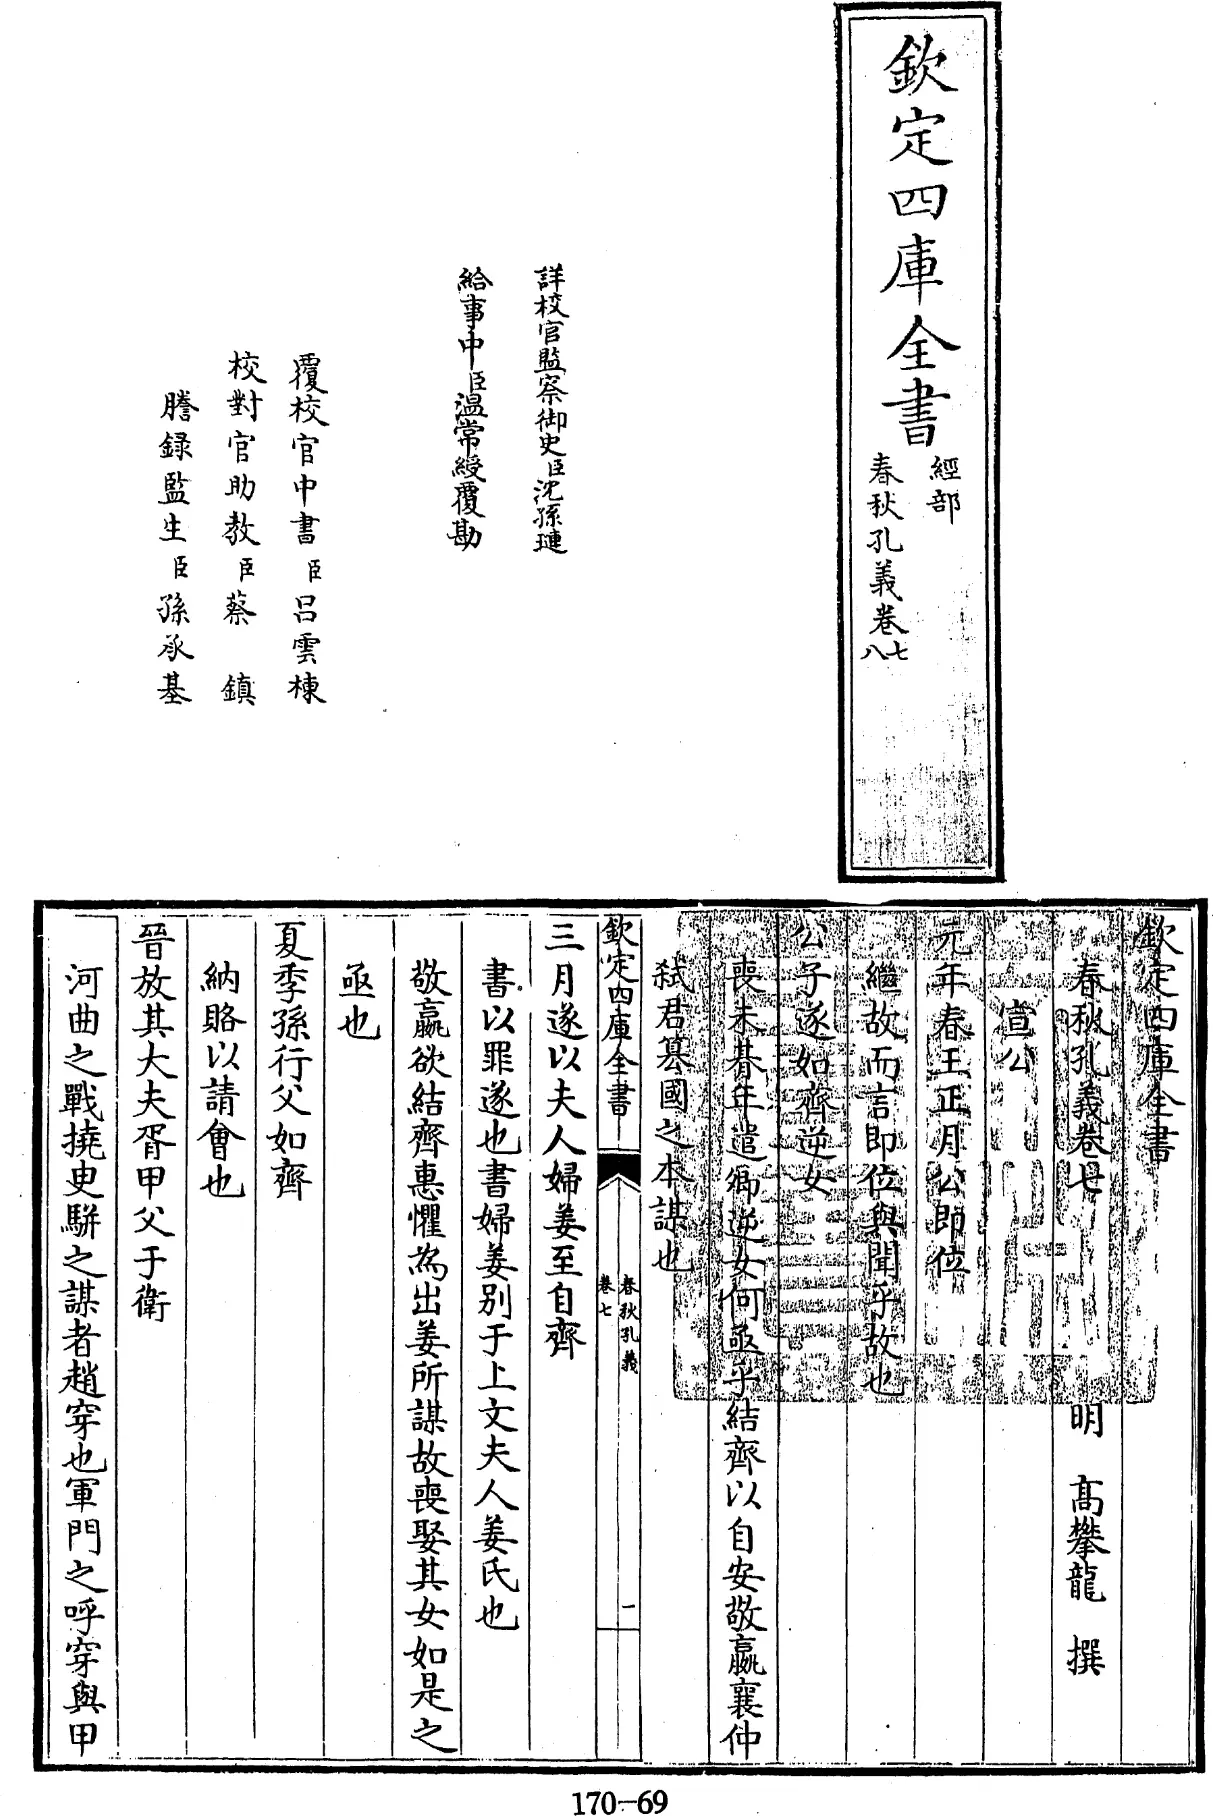 欽定四庫全書
經部
春秋孔義卷七
八
詳校官監察御史臣沈孫璉
給事中臣温常綬覆勘
覆校官中書臣吕雲棟
校對官助教臣蔡鎮
謄録監生臣孫承基
欽定四庫全書
春秋孔義卷七
明 髙攀龍 撰
宣公
元年春王正月公即位
繼故而言即位與聞乎故也
公子遂如齊逆女
喪未朞年遣卿逆女何亟乎結齊以自安敬嬴襄仲
弑君篡國之本謀也
欽定四庫全書
春秋孔義
卷七
一
三月遂以夫人婦姜至自齊
書以罪遂也書婦姜别于上文夫人姜氏也
敬嬴欲結齊惠懼為出姜所謀故喪娶其女如是之
亟也
夏季孫行父如齊
納賂以請㑹也
晉放其大夫胥甲父于衛
河曲之戰撓臾駢之謀者趙穿也軍門之呼穿與甲
170-69